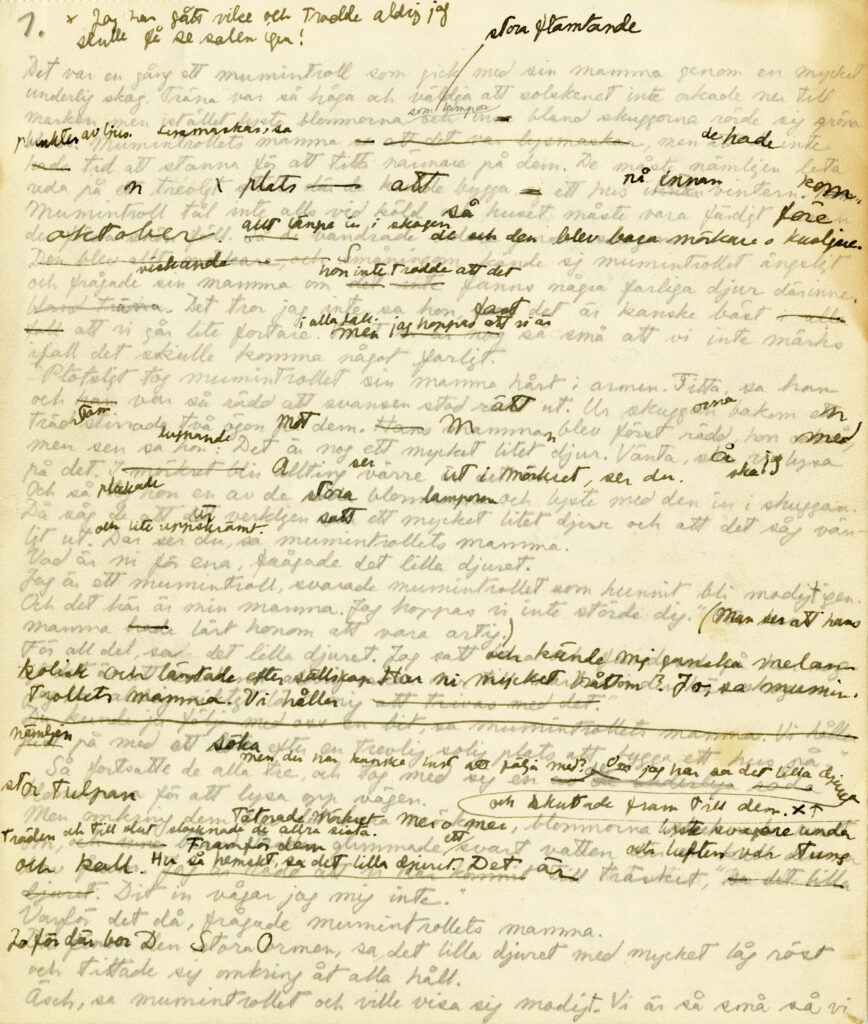 1. x Jag har gått vilse och trodde aldrig jag
skulle få se solen igen!
stora flämtande
Det var en gång ett mumintroll som gick med sin mamma genom en mycket
underlig skog. Träna var så höga och väldiga att solskenet inte orkade ner till
som lampor
marken men istället lyste blommorna och bland skuggorna rörde sig gröna
punkter av ljus. Lysmaskar, sa de hade
mumintrollets mamma att det var lysmaskar, men inte
hade tid att stanna för att titta närmare på dem. De måste nämligen leta
reda på en trevlig plats att bygga ett hus på innan vintern kom.
Mumintroll tål inte alls vid köld, så huset måste vara färdigt före
oktober. allt längre in i skogen
vandrade de och den blev bara mörkare o kusligare.
Den blev Småningom sig mumintrollet ängsligt
viskande hon inte trodde att det
och frågade sin mamma om det inte fanns några farliga djur därinne
bland träna. Det tror jag inte sa hon, fast det är kanske bäst
i alla fall. men jag hoppas att vi är
att vi går lite fortare. så små att vi inte märks
ifall det skulle komma något farligt.
Plötsligt tog mumintrollet sin mamma hårt i armen. Titta, sa han
och var så rädd att svansen stod rätt ut. Ur skuggorna bakom en
träd stirrade två ögon mot dem. Mamman blev först rädd hon med
lugnande
men sen sa hon: Det är nog ett mycket litet djur. Vänta, så ska jag lysa
på det. Allting ser värre ut i mörkret, ser du.
plockade
Och så hon en av de stora blomlamporna och lyste med den in i skuggan.
Då såg de att det verkligen satt ett mycket litet djur och att det såg vän-
och lite uppskrämt.
ligt ut. Där ser du, sa mumintrollets mamma.
Vad är ni för ena, frågade det lilla djuret.
Jag är ett mumintroll, svarade mumintrollet som hunnit bli modigt igen.
Och det här är min mamma. Jag hoppas vi inte störde dig." (Man ser att hans
mamma lärt honom att vara artig.)
För all del, sa det lilla djuret. Jag satt och kände mig ganska melan-
kolisk och längtade efter sällskap. Har ni mycket bråttom? Jo, sa mumin-
trollets mamma. Vi håller att trivas med det."
med oss en bit, sa mumintrollets mamma. Vi håller
nämligen på med att söka efter en trevlig, solig plats att bygga ett hus på."
men du har kanske lust att följa med? Om jag har sa det lilla djuret
Så fortsatte de alla tre, och tog med sig en
stor tulpan för att lysa opp vägen. och skuttade fram till dem. x↑
Men omkring dem tätnade mörkret mer o mer, blommorna lyste svagare under
träden och till slut slocknade de allra sista.
Framför dem glimmade ett svart vatten och luften var tung
och kall. Hu så hemskt, sa det lilla djuret. Det är träsket," sa det lilla
djuret. Dit in vågar jag mig inte."
Varför det då, frågade mumintrollets mamma.
Jo för där bor Den Stora Ormen, sa det lilla djuret med mycket låg röst
och tittade sig omkring åt alla håll.
Äsch, sa mumintrollet och ville visa sig modigt. Vi är så små så vi